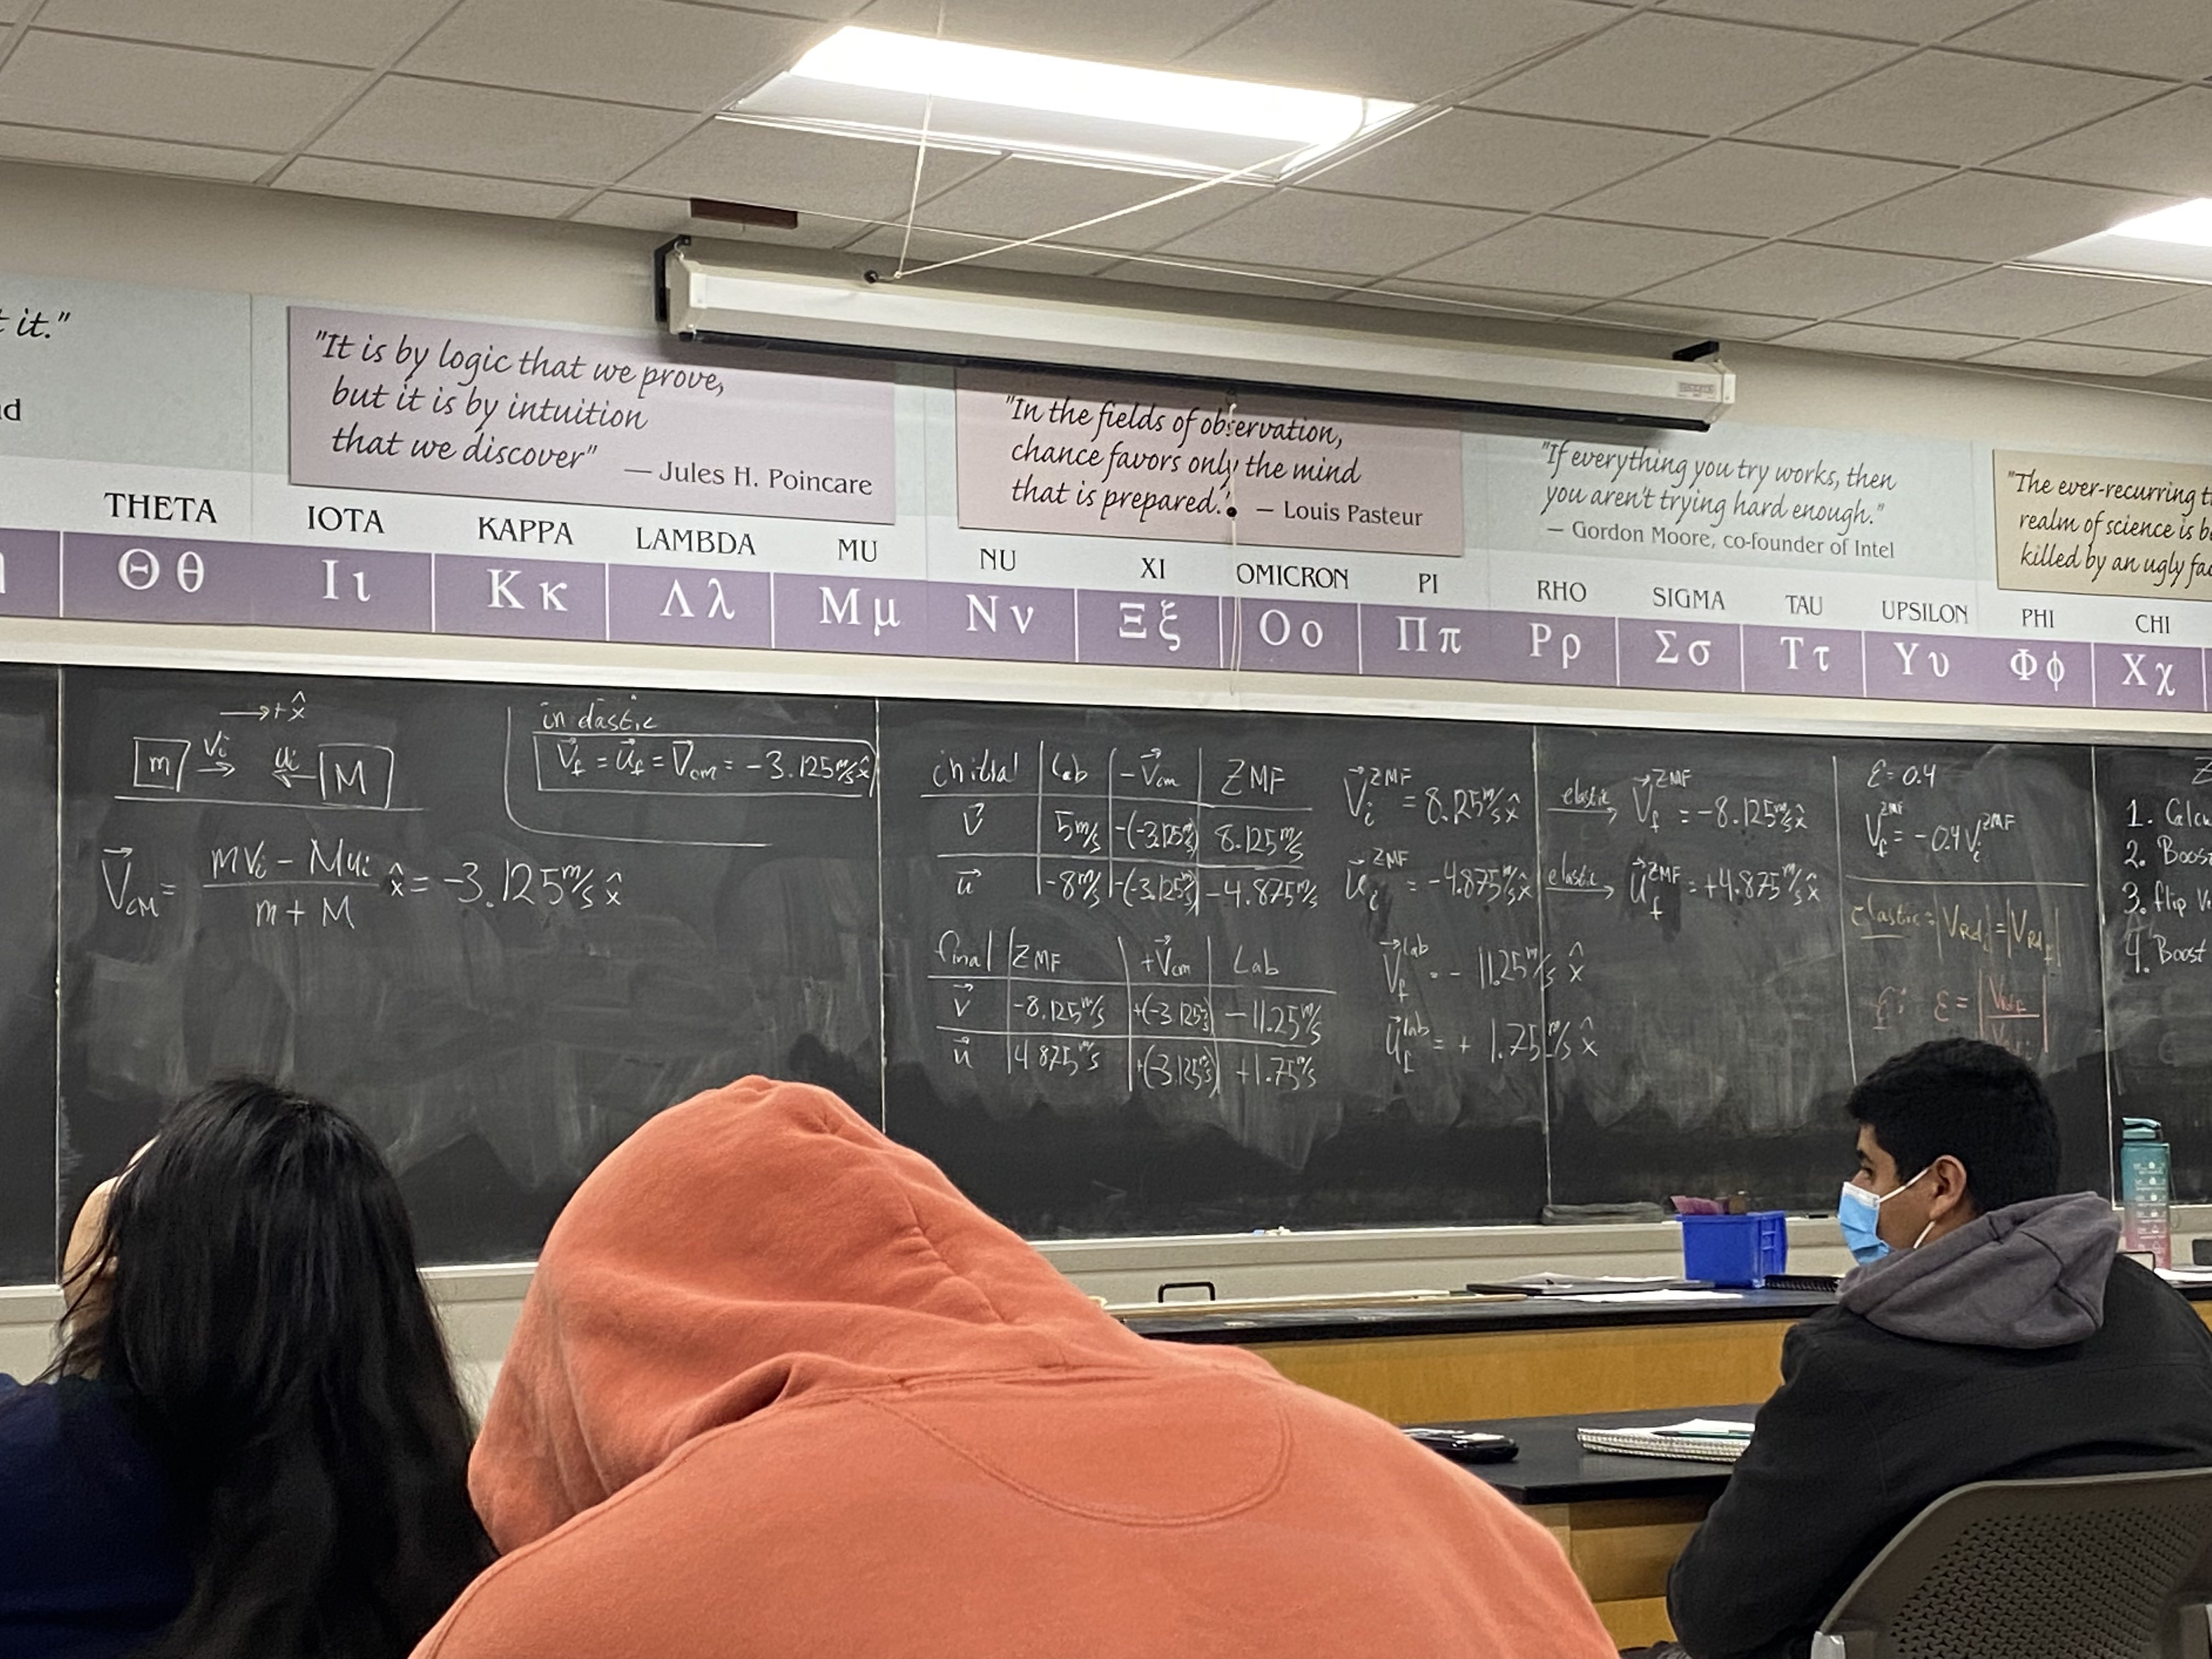 t it."
"It is by logic that we prove,
but it is by intuition
that we discover"
— Jules H. Poincare
"In the fields of observation,
chance favors only the mind
that is prepared."
— Louis Pasteur
"If everything you try works, then
you aren't trying hard enough."
— Gordon Moore, co-founder of Intel
"The ever-recurring t
realm of science is b
killed by an ugly fa
THETA IOTA KAPPA LAMBDA MU NU XI OMICRON PI RHO SIGMA TAU UPSILON PHI CHI
Θθ Ιι Κκ Λλ Μμ Νν Ξξ Οο Ππ Ρρ Σσ Ττ Υυ Φφ Χχ
→+x̂
m v⃗i u⃗i M
V⃗CM = (mvi − Mui)/(m + M) x̂ = −3.125 m/s x̂
inelastic
v⃗f = u⃗f = V⃗cm = −3.125 m/s x̂
initial Lab −V⃗cm ZMF
v⃗ 5 m/s −(−3.125 m/s) 8.125 m/s
u⃗ −8 m/s −(−3.125 m/s) −4.875 m/s
final ZMF +V⃗cm Lab
v⃗ −8.125 m/s +(−3.125 m/s) −11.25 m/s
u⃗ 4.875 m/s +(−3.125 m/s) +1.75 m/s
v⃗i^ZMF = 8.125 m/s x̂ elastic → v⃗f^ZMF = −8.125 m/s x̂
u⃗i^ZMF = −4.875 m/s x̂ elastic → u⃗f^ZMF = +4.875 m/s x̂
v⃗f^lab = − 11.25 m/s x̂
u⃗f^lab = + 1.75 m/s x̂
ε = 0.4
vf^ZMF = −0.4 vi^ZMF
elastic: |VRel i| = |VRel f|
ε =
1. Calcu
2. Boost
3. flip V
4. Boost